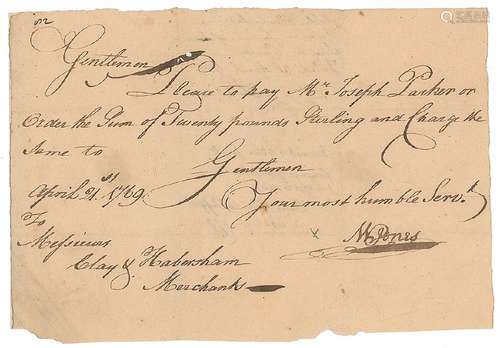 Gentlemen
Please to pay Mr. Joseph Parker or
Order the Sum of Twenty pounds Sterling and Charge the
Same to
Gentlemen
April 21st 1769
Your most humble Servt
To
Messieurs
Clay & Habersham
Merchants
x
Jones